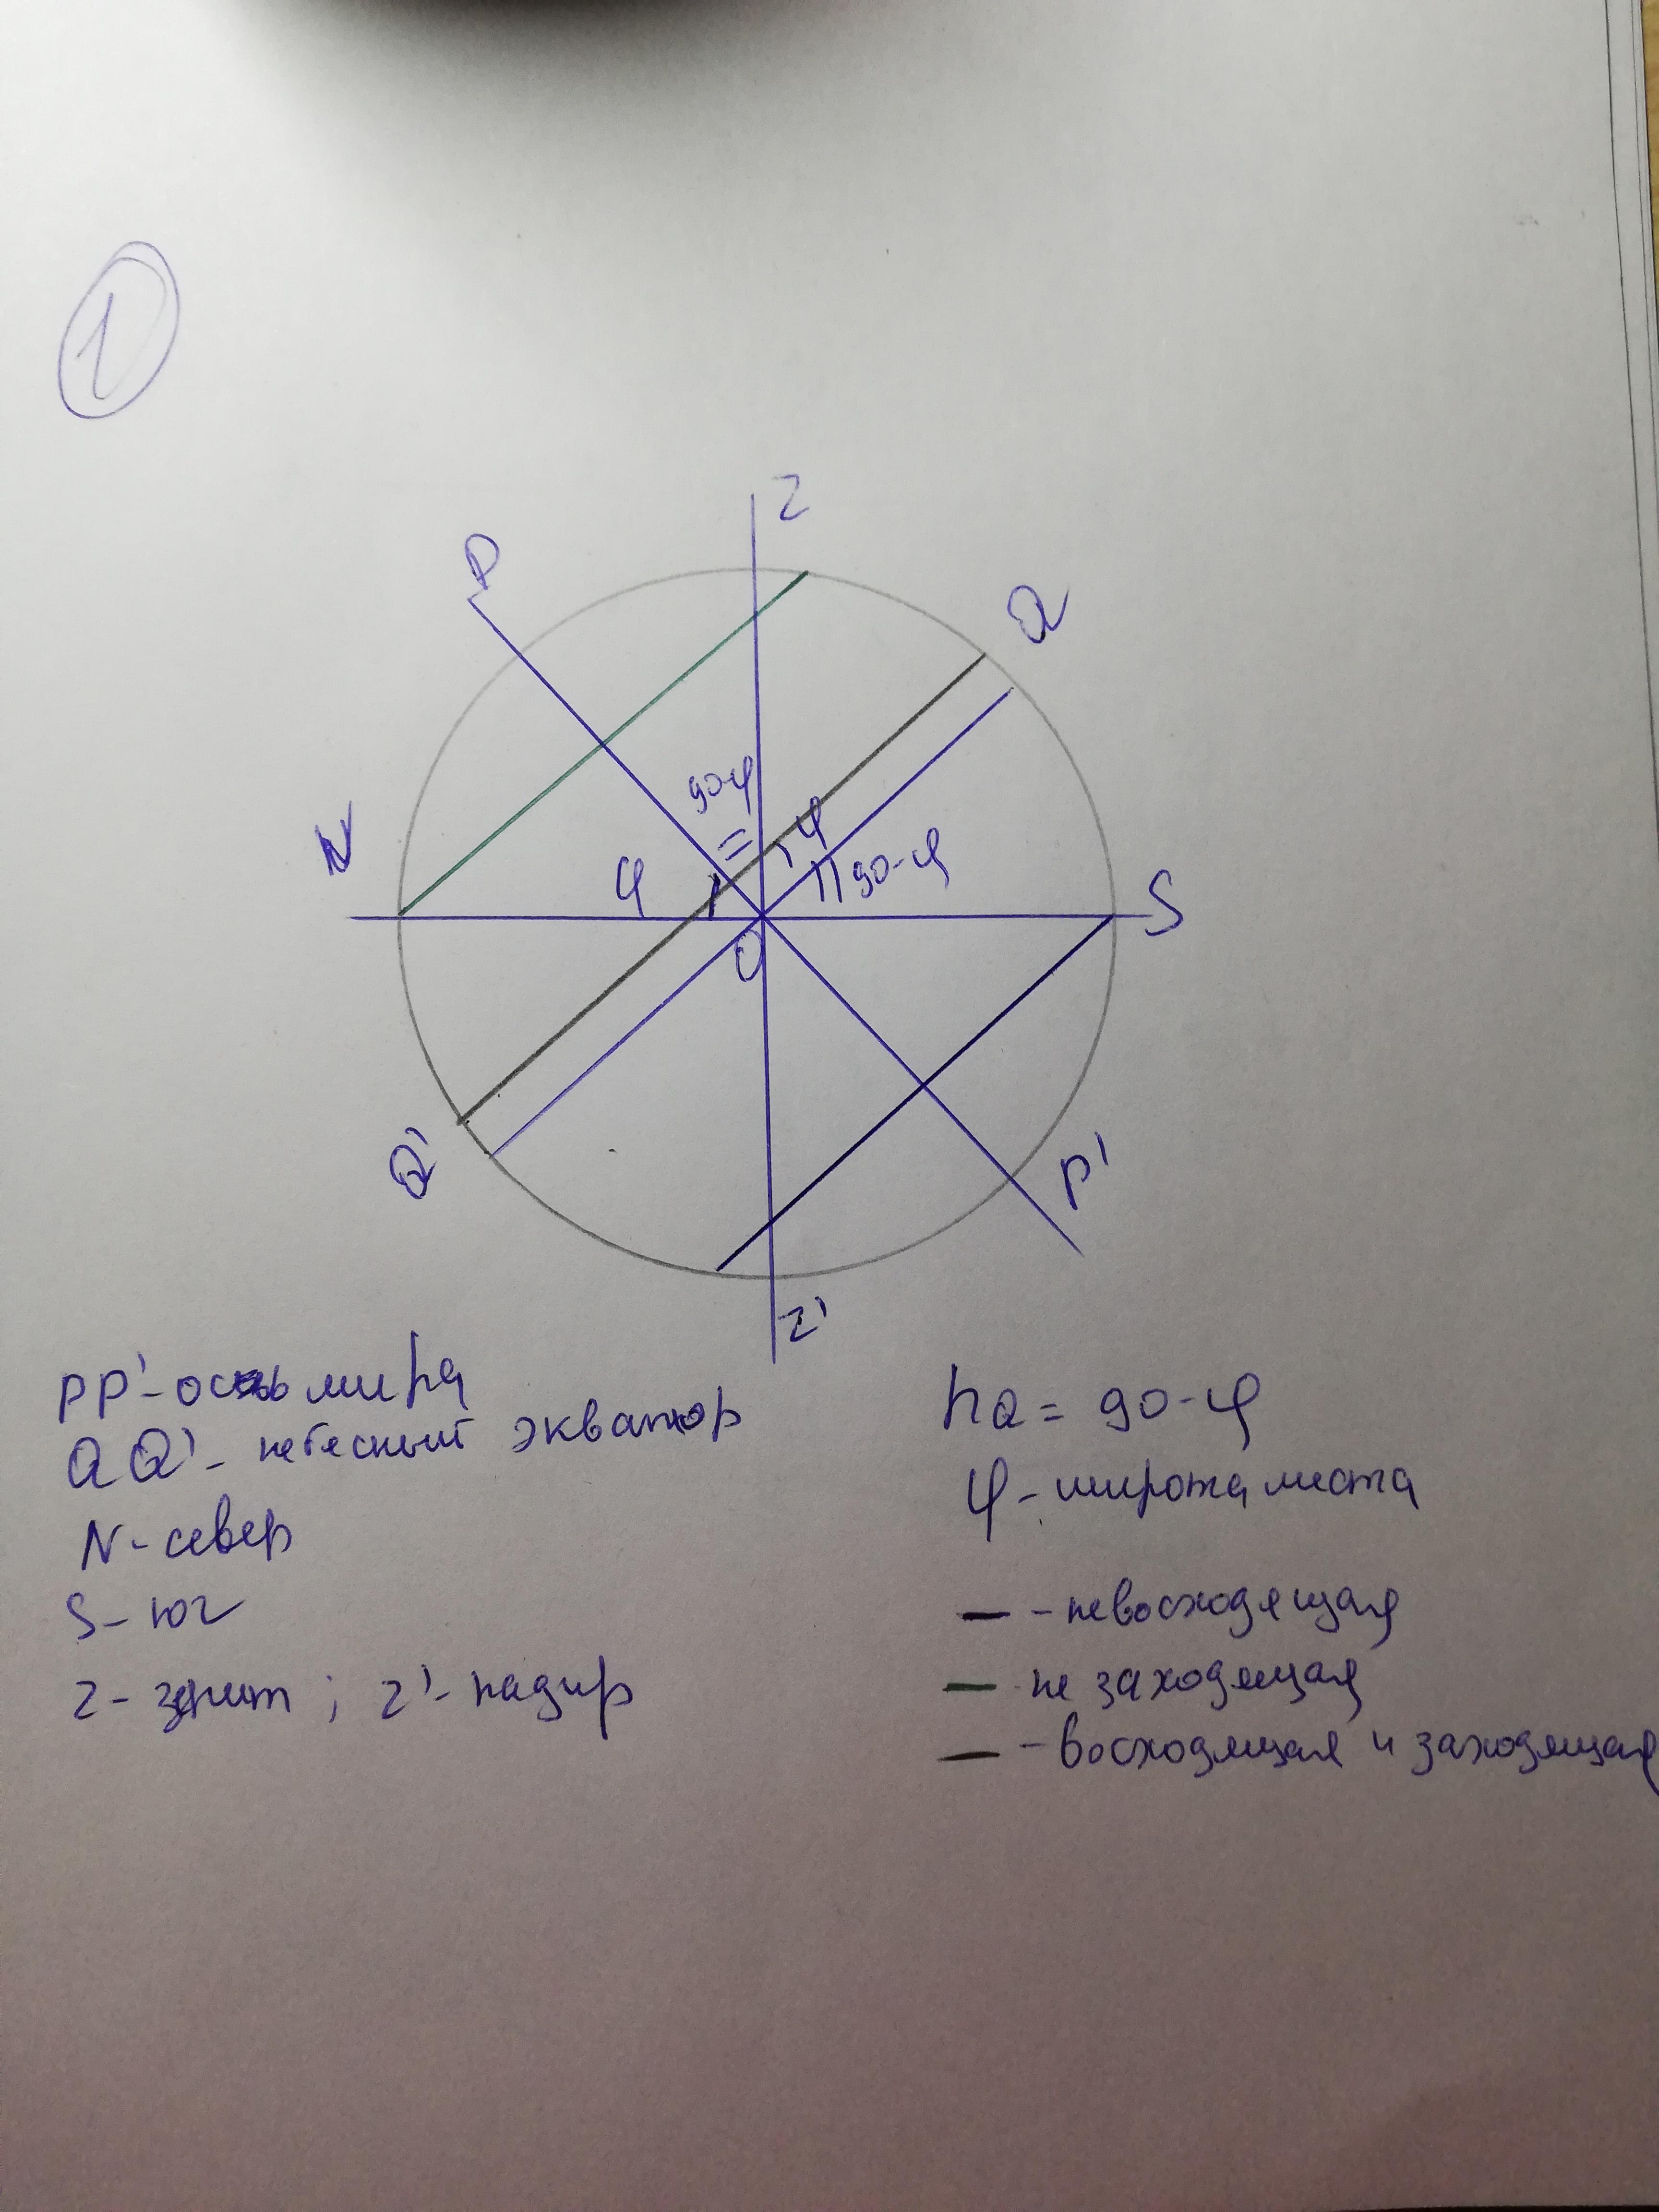 1
Z
P
Q
90-φ
N
φ
φ
90-φ
S
O
Q'
P'
Z'
PP' - ось мира
QQ' - небесный экватор
N - север
S - юг
Z - зенит ; Z' - надир
hQ = 90-φ
φ - широта места
— - невосходящая
— не заходящая
— - восходящая и заходящая